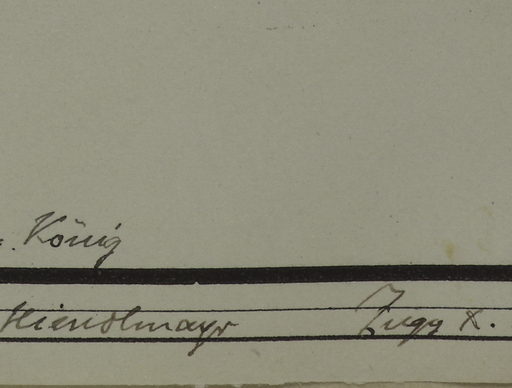 König
Hiendlmayr Zugg X.